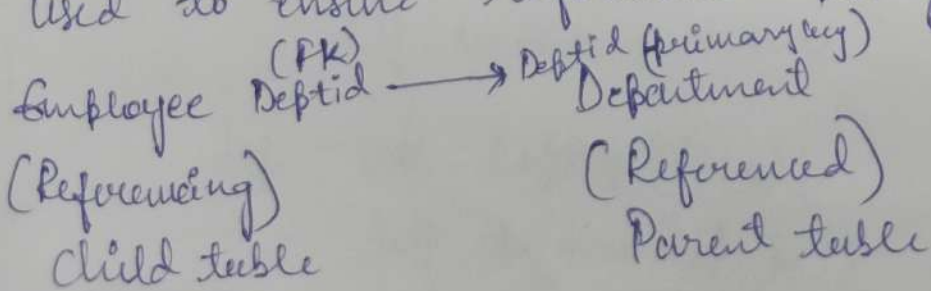 used to ensure
(FK)
Employee Deptid → Deptid (primary key)
Department
(Referencing) (Referenced)
Child table Parent table